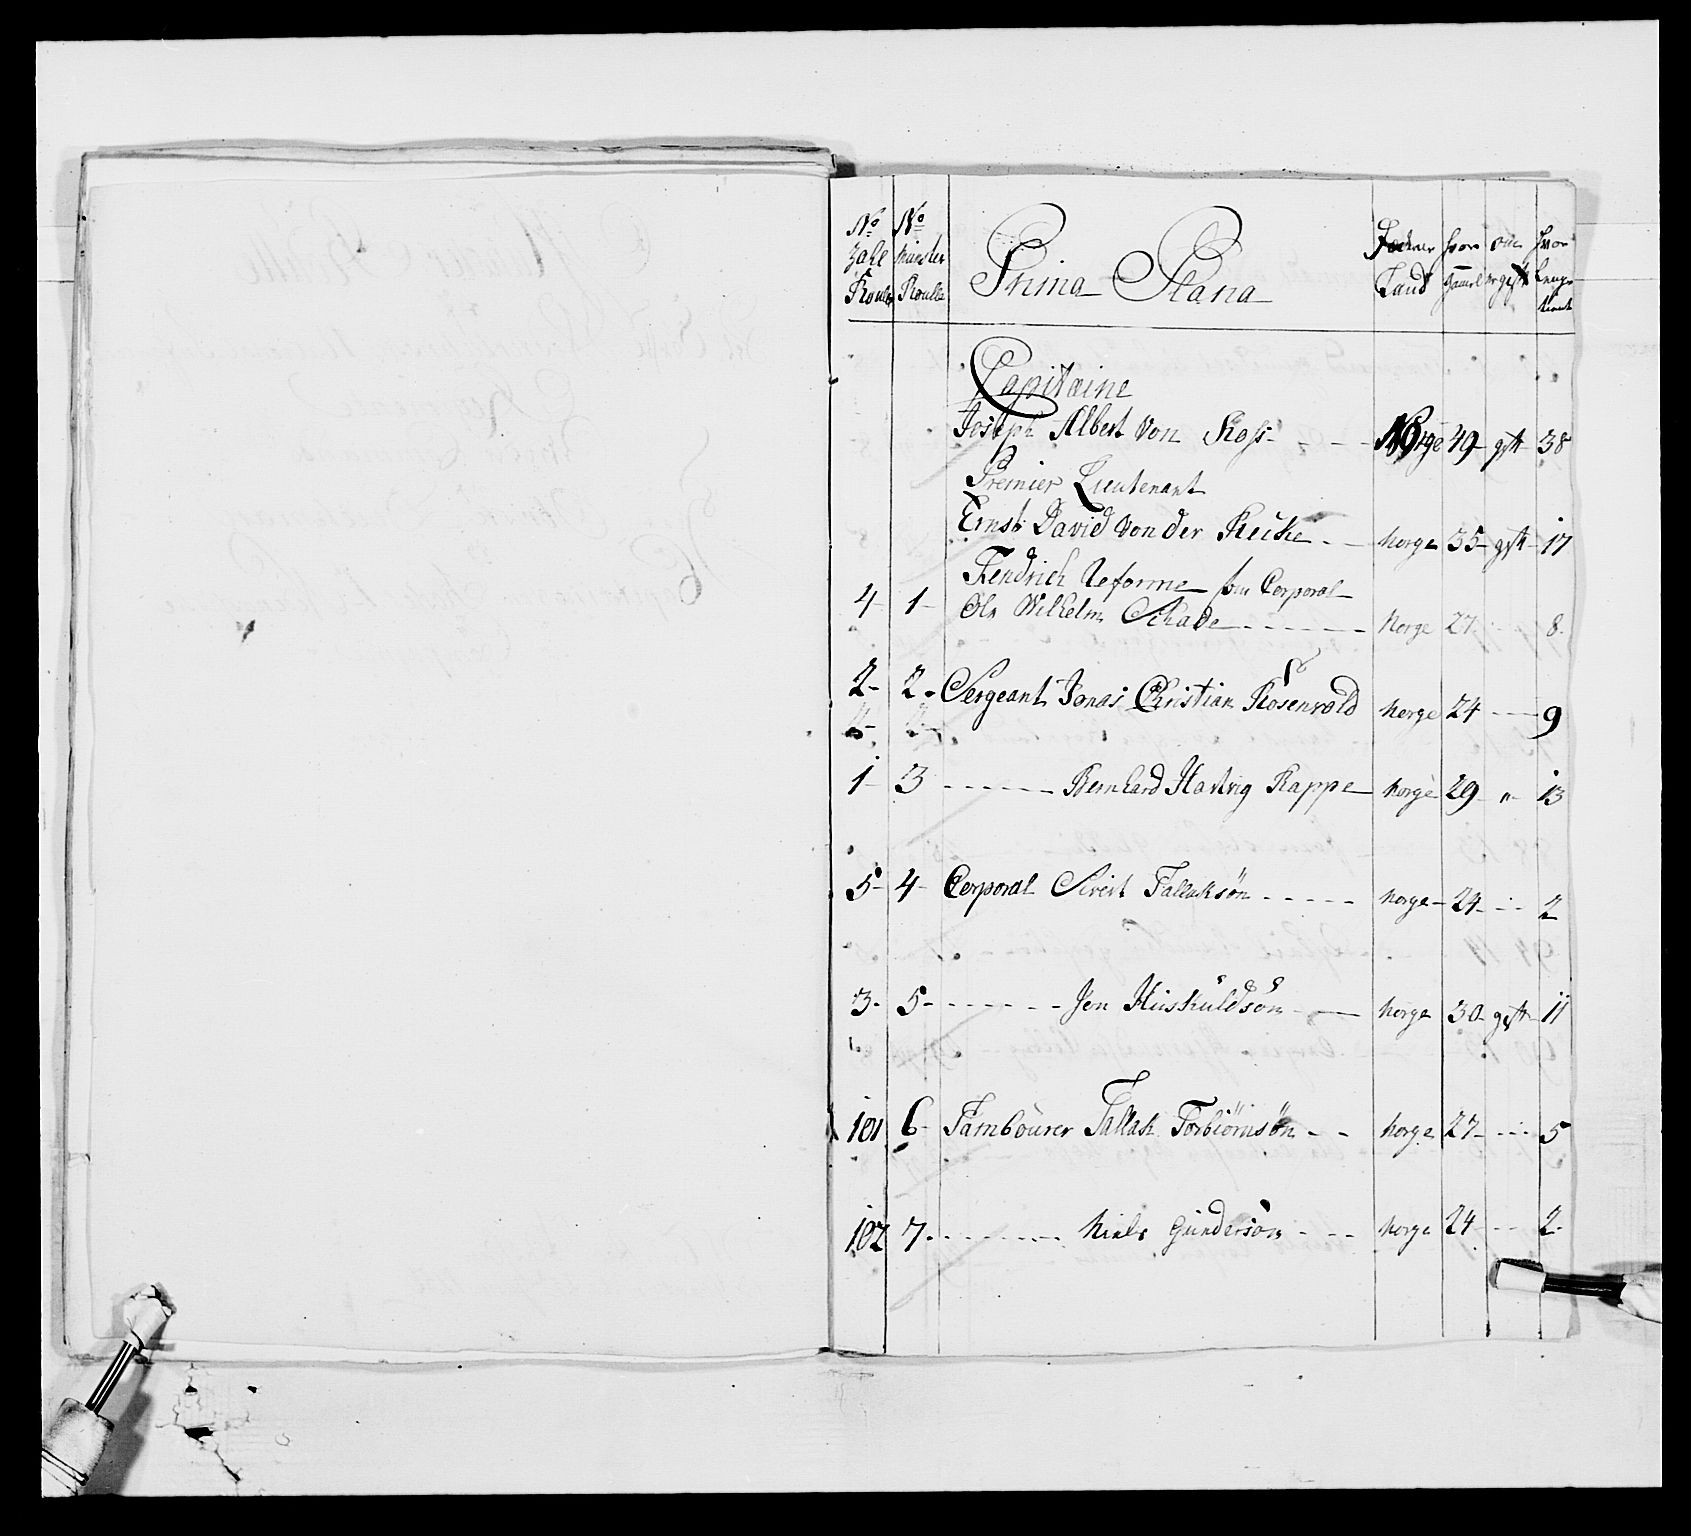 No No Prima Plana Födener hvor om hvor
Zahl Munster Land gamel ergift lenge
Roulle Roulle tient
Capitaine
Joseph Albert von Koss - - - Norge 49 - gift 38
Premier Lieutenant
Ernst David von der Recke - - Norge 35 - gift - 17
Fendrich Reforme som Corporal
4 - 1 - Ole Wilhelm Schade - - - - - - Norge 27 - - - 8
2 - 2 - Sergeant Jonas Christian Rosenvold Norge 24 - - - 9
1 - 3 - - - - - - Bernhard Hartvig Rappe - Norge 29 - " - 13
5 - 4 - Corporal Sivert Tallaksøn - - - - - Norge - 24 - - - 2
3 - 5 - - - - - - - Jon Huskuldsøn - - Norge 30 - gift - 11
101 6 - Tambourer Tallak Torbiørnsøn - - Norge 27 - - - 5
102 7 - - - - - - - Niels Gundersøn - - - Norge 24 - - - 2 -